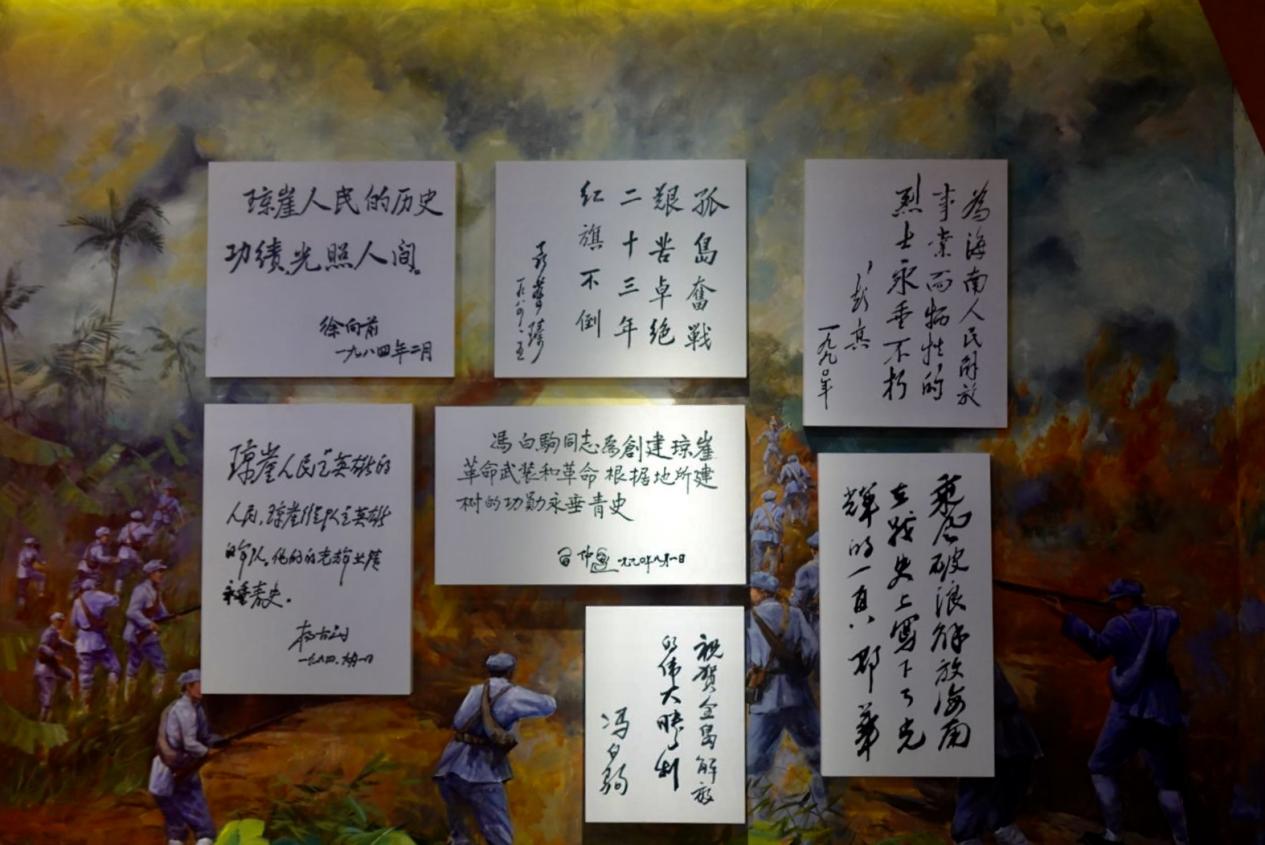 琼崖人民的历史
功绩,光照人间。
徐向前
一九八四年二月
孤岛奋戰
艰苦卓绝
二十三年
红旗不倒
聂荣臻
一九八〇·五
为海南人民解放
事業而牺牲的
烈士永垂不朽
彭真
一九九〇年
琼崖人民是英雄的
人民,琼崖纵队是英雄
的部队,他們的光荣业绩
永垂青史。
杨尚昆
冯白駒同志為創建琼崖
革命武装和革命根据地所建
树的功勋永垂青史
習仲勋 一九九〇年八月一日
祝贺全島解放
的伟大勝利
冯白驹
乘风破浪解放海南
在战史上写下了光
輝的一頁 邓華